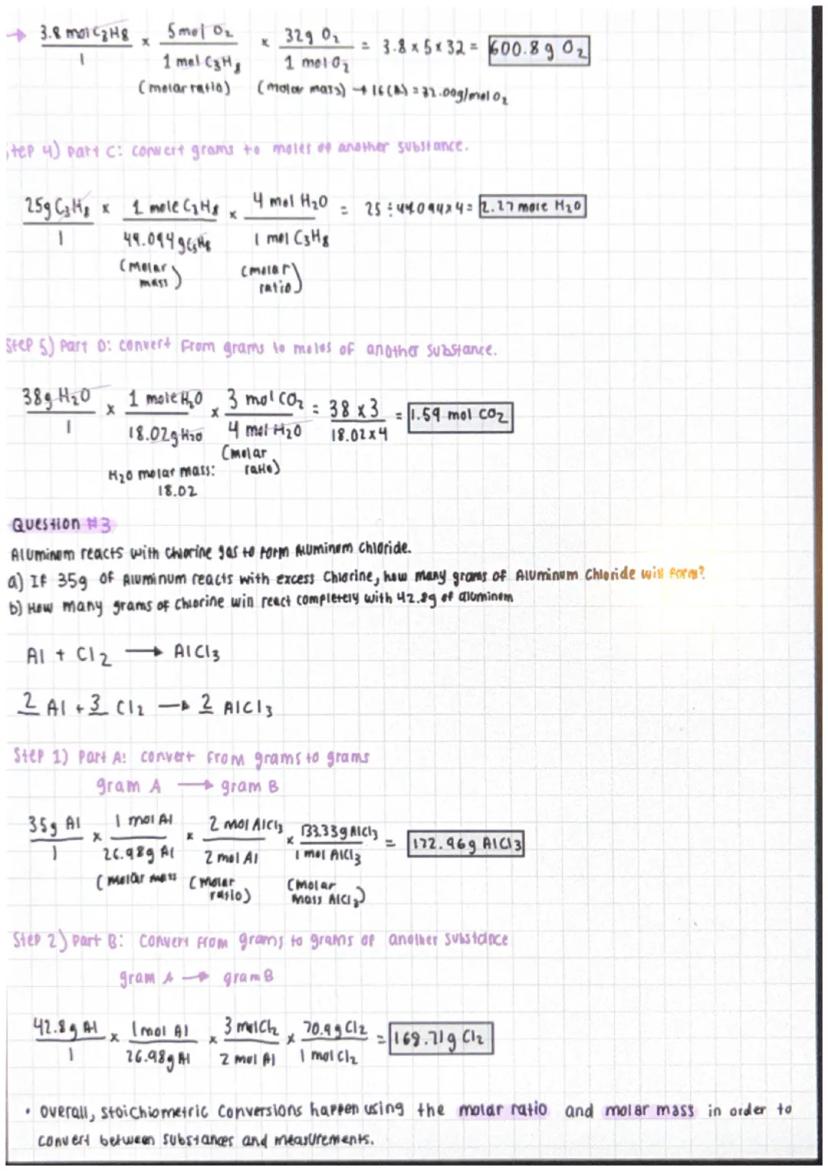 → 3.8 mol C3H8 / 1 × 5 mol O2 / 1 mol C3H8 × 32g O2 / 1 mol O2 = 3.8 × 5 × 32 = 600.8 g O2
(molar ratio) (molar mass) → 16(2) = 32.00g/mol O2
Step 4) Part C: convert grams to moles of another substance.
25g C3H8 / 1 × 1 mole C3H8 / 44.094 g C3H8 × 4 mol H2O / 1 mol C3H8 = 25 ÷ 44.094 × 4 = 2.27 mole H2O
(molar mass) (molar ratio)
Step 5) Part D: convert from grams to moles of another substance.
38g H2O / 1 × 1 mole H2O / 18.02g H2O × 3 mol CO2 / 4 mol H2O = 38 × 3 / 18.02 × 4 = 1.59 mol CO2
(molar ratio)
H2O molar mass:
18.02
Question #3
Aluminum reacts with chlorine gas to form Aluminum Chloride.
a) If 35g of Aluminum reacts with excess Chlorine, how many grams of Aluminum Chloride will form?
b) How many grams of Chlorine will react completely with 42.8g of aluminum
Al + Cl2 → AlCl3
2 Al + 3 Cl2 → 2 AlCl3
Step 1) Part A: convert from grams to grams
gram A → gram B
35g Al / 1 × 1 mol Al / 26.98g Al × 2 mol AlCl3 / 2 mol Al × 133.33g AlCl3 / 1 mol AlCl3 = 172.96g AlCl3
(molar mass (molar ratio) (molar mass AlCl3)
Step 2) Part B: Convert from grams to grams of another substance
gram A → gram B
42.8g Al / 1 × 1 mol Al / 26.98g Al × 3 mol Cl2 / 2 mol Al × 70.9g Cl2 / 1 mol Cl2 = 168.71g Cl2
• Overall, Stoichiometric Conversions happen using the molar ratio and molar mass in order to
convert between substances and measurements.